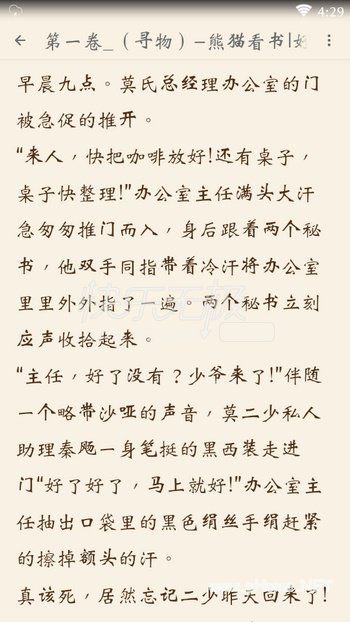 4:29
第一卷_（寻物）-熊猫看书|好
早晨九点。莫氏总经理办公室的门
被急促的推开。
“来人，快把咖啡放好!还有桌子，
桌子快整理!”办公室主任满头大汗
急匆匆推门而入，身后跟着两个秘
书，他双手同指带着冷汗将办公室
里里外外指了一遍。两个秘书立刻
应声收拾起来。
“主任，好了没有？少爷来了!”伴随
一个略带沙哑的声音，莫二少私人
助理秦飑一身笔挺的黑西装走进
门“好了好了，马上就好!”办公室主
任抽出口袋里的黑色绢丝手绢赶紧
的擦掉额头的汗。
真该死，居然忘记二少昨天回来了!